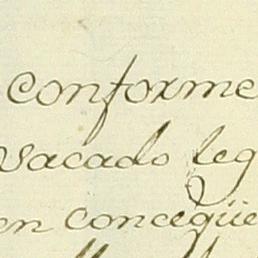 conforme
sacado leg
en conceqüe